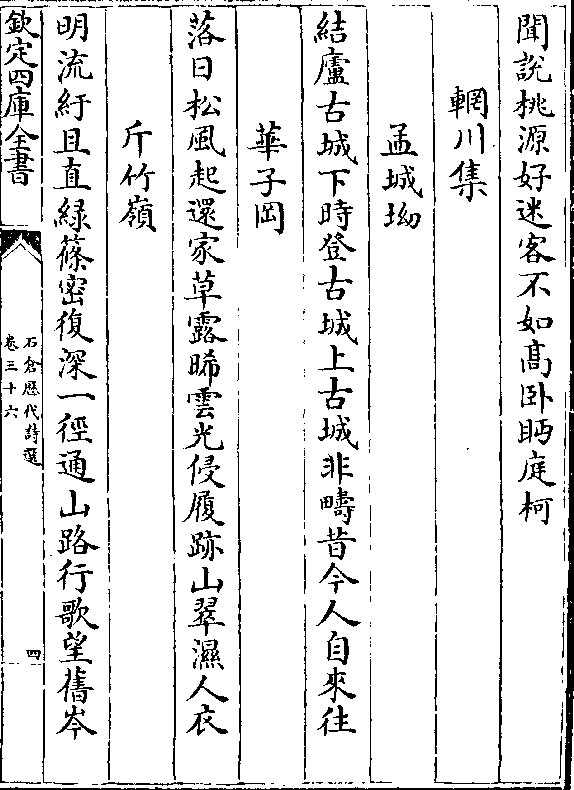 聞說桃源好迷客不如髙卧眄庭柯
輞川集
孟城坳
結廬古城下時登古城上古城非疇昔今人自來往
華子岡
落日松風起還家草露晞雲光侵履跡山翠濕人衣
斤竹嶺
明流紆且直緑篠密復深一徑通山路行歌望舊岑
欽定四庫全書
石倉歴代詩選
卷三十六
四